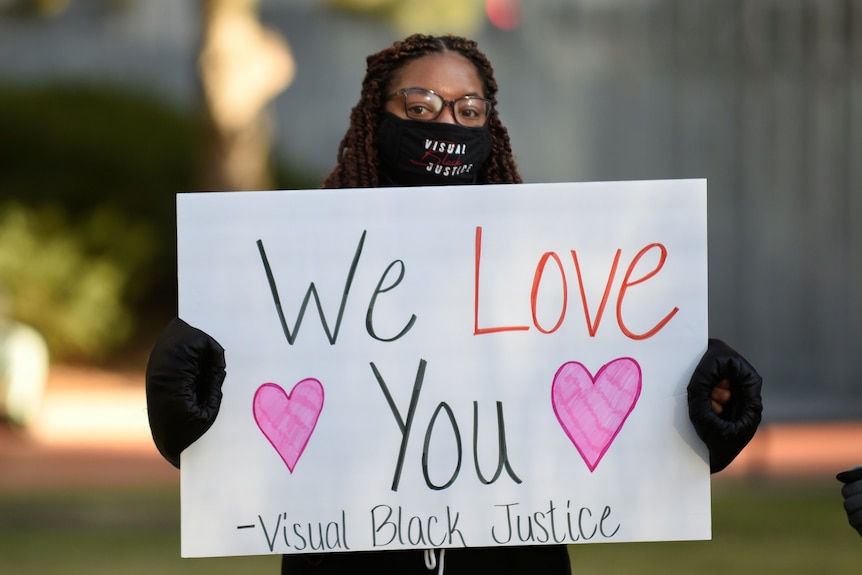 VISUAL
Black
JUSTICE
We Love
You
-Visual Black Justice